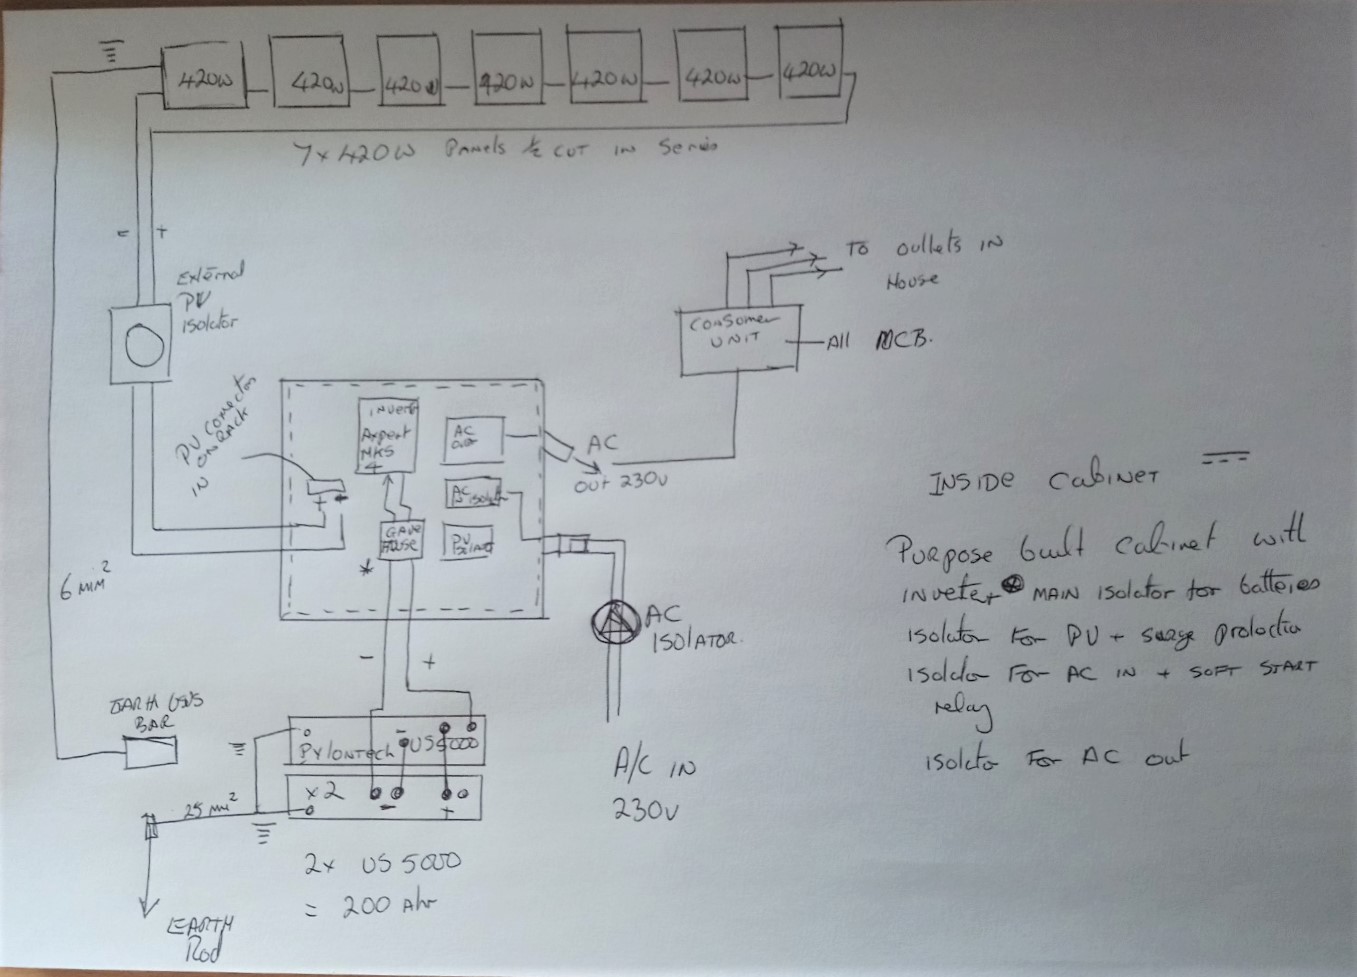 420W
420W
420W
420W
420W
420W
420W
7 x 420W Panels ½ CUT IN Series
- +
External
PV
isolator
TO Outlets IN
House
Consomer
UNIT
All MCB.
PV Conector
ON RACK
IN
Invert
Axpert
MKS
4
AC
Out
AC
isolat
PV
+ -
FUSE
*
AC
Out 230v
AC
ISOLATOR.
A/C IN
230v
6mm²
- +
BAR
PYLONTECH US5000
-
x2
- +
25 mm²
2x US 5000
= 200 Ahr
EARTH
Rod
INSIDE Cabinet
Purpose built Cabinet with
Inveter MAIN isolator for batteries
isolator For PV + surge protectio
isolator For AC IN + SOFT START
relay
isolator For AC out